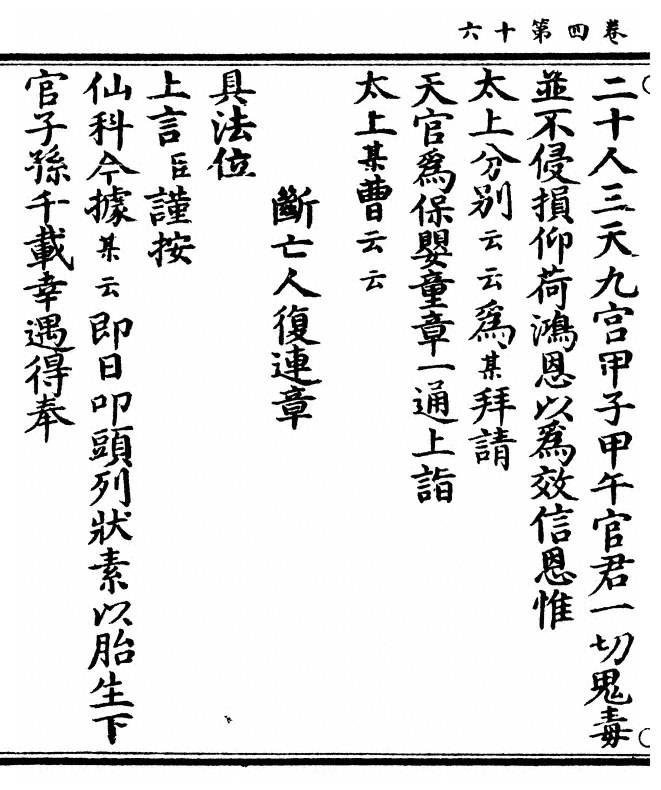 卷四第十六
二十人三天九宫甲子甲午官君一切鬼毒
並不侵損仰荷鴻恩以爲效信恩惟
太上分别云云爲某拜請
天官爲保嬰童章一通上詣
太上某曹云云
斷亡人復連章
具法位
上言臣謹按
仙科今據某云即日叩頭列狀素以胎生下
官子孫千載幸遇得奉